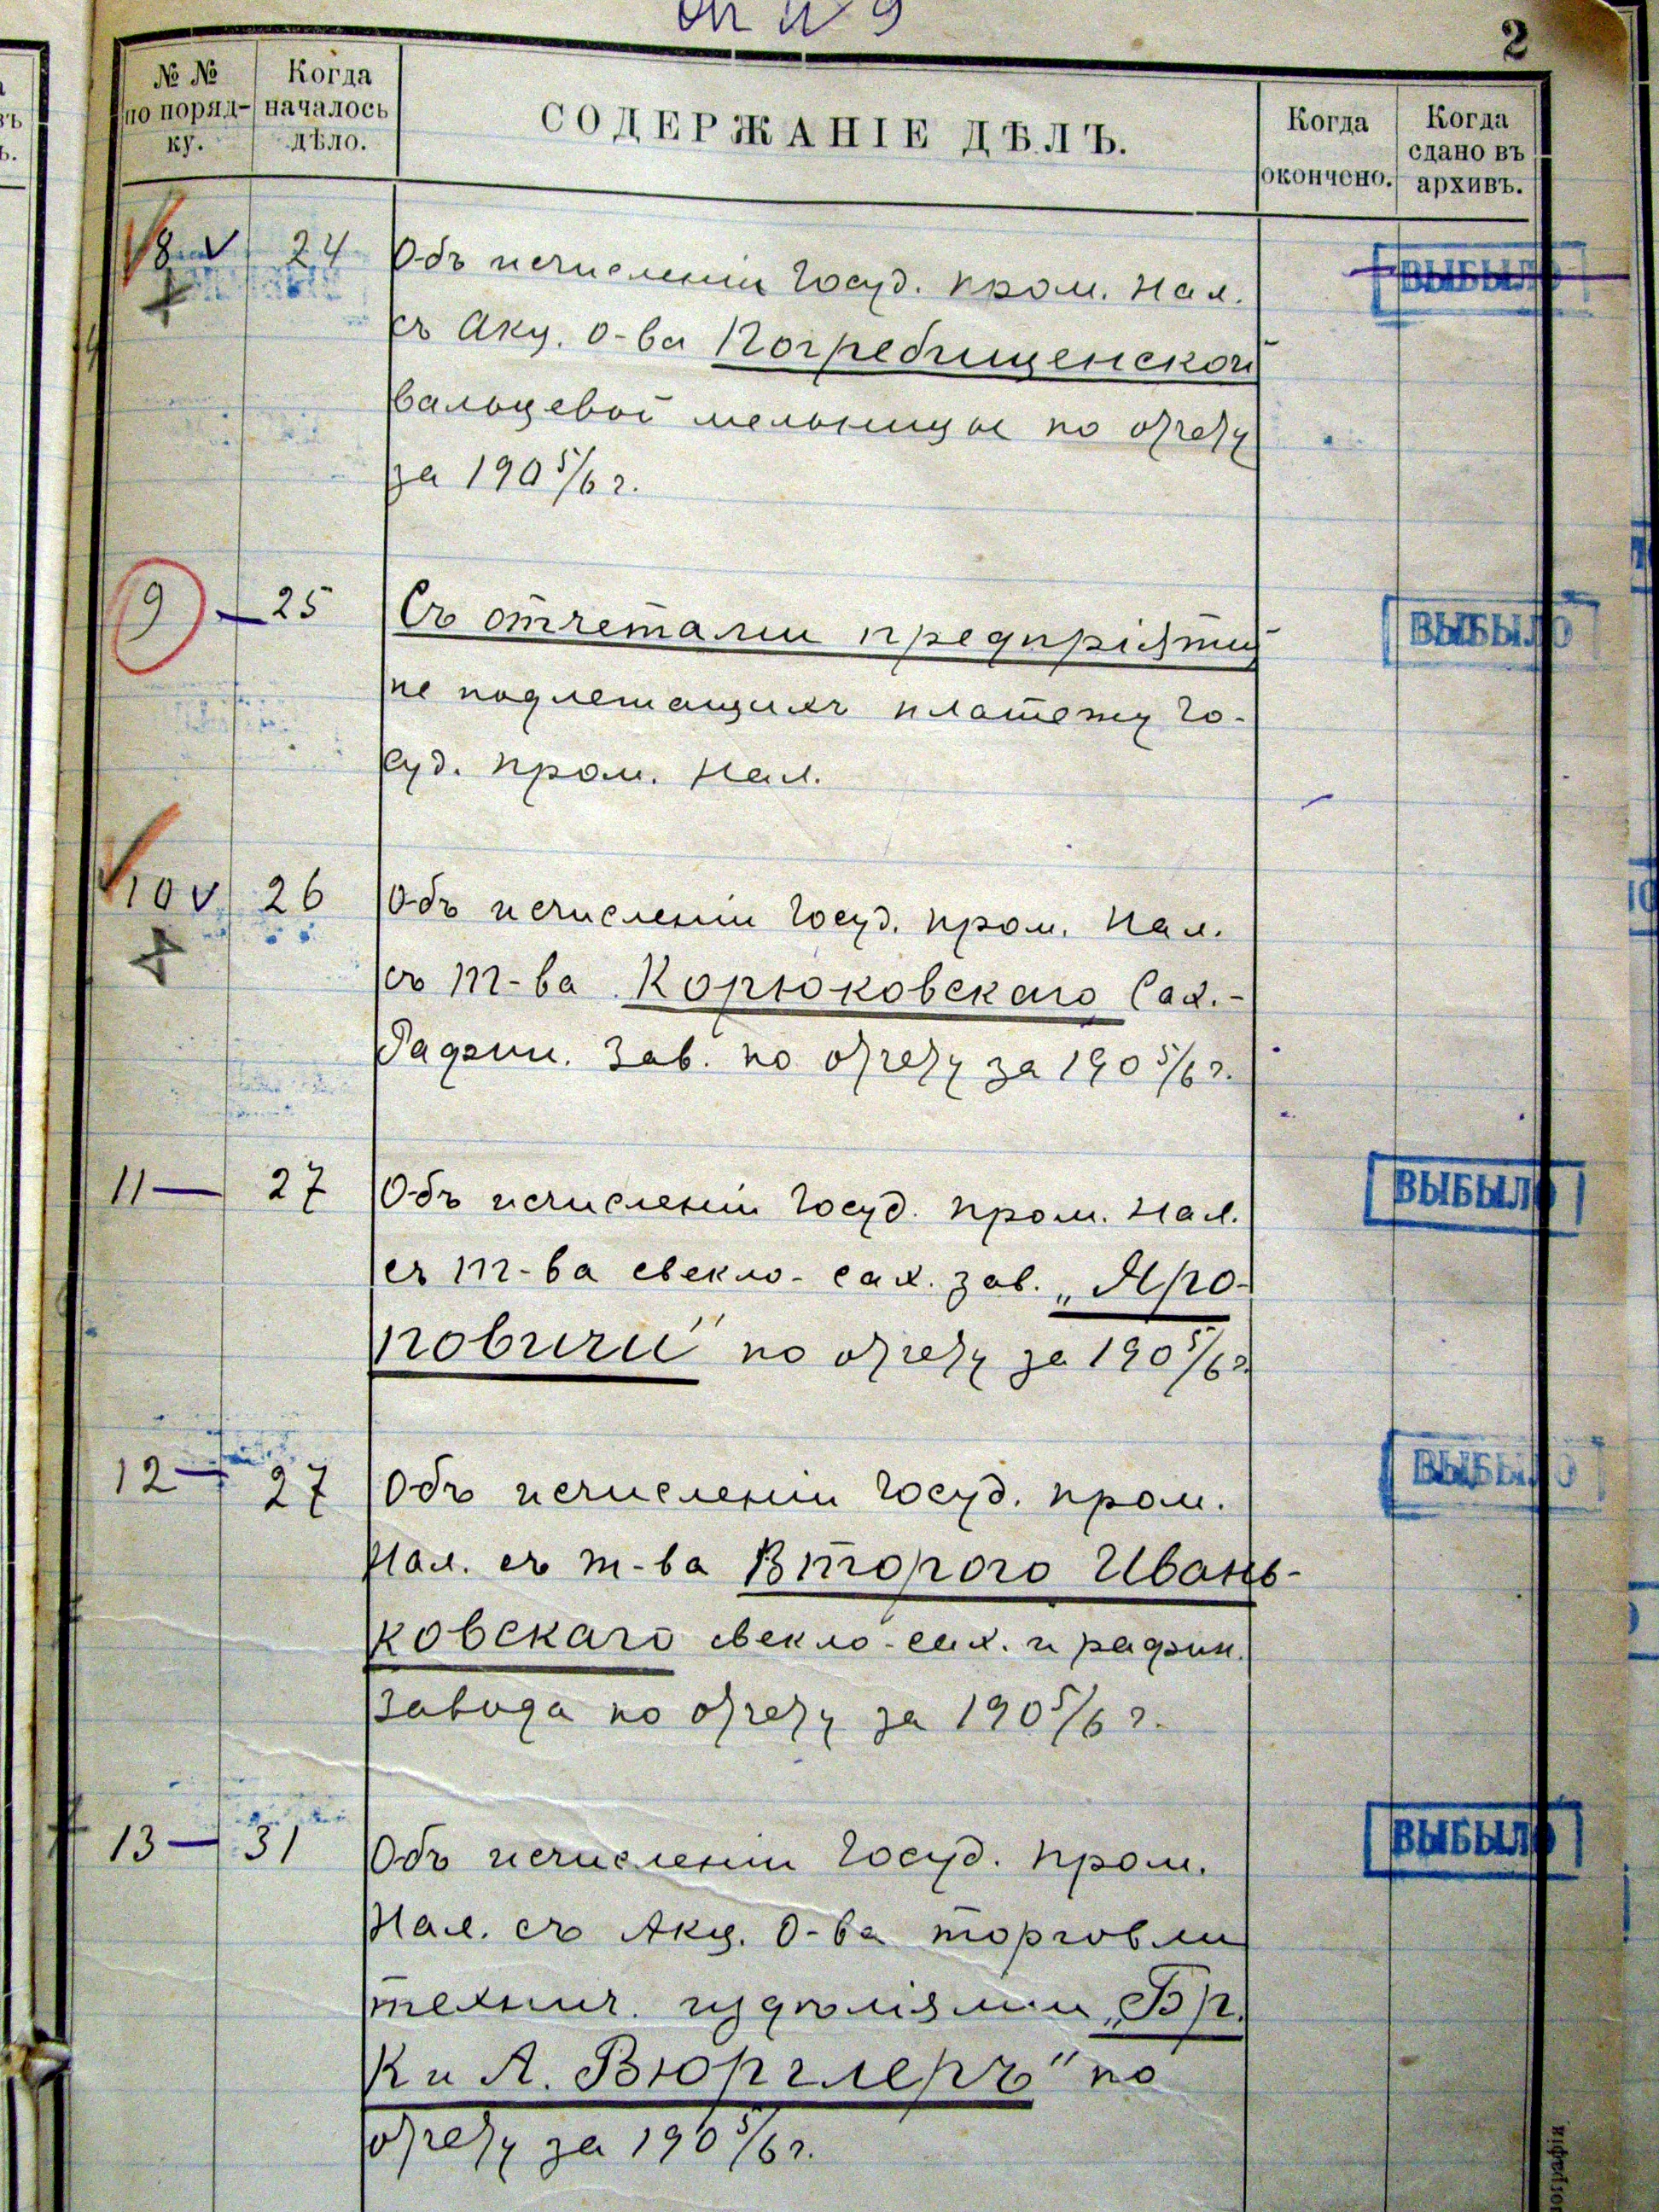 оп N 9
2
№ №
по поряд-
ку.
Когда
началось
дѣло.
СОДЕРЖАНІЕ ДѢЛЪ.
Когда
окончено.
Когда
сдано въ
архивъ.
8 v 24 Объ исчисленіи Госуд. пром. нал. ВЫБЫЛО
съ Акц. О-ва Погребищенской
вальцевой мельницы по отчету
за 190 5/6 г.
9 — 25 Съ отчетами предпріятій ВЫБЫЛО
не подлежащихъ платежу Го-
суд. пром. нал.
10 v 26 Объ исчисленіи Госуд. пром. нал.
съ т-ва Корюковскаго Сах.-
Рафин. Зав. по отчету за 190 5/6 г.
11 — 27 Объ исчисленіи Госуд. пром. нал. ВЫБЫЛО
съ т-ва свекло-сах. зав. „Яро-
повичи" по отчету за 190 5/6 г.
12 — 27 Объ исчисленіи Госуд. пром. ВЫБЫЛО
Нал. съ т-ва Второго Ивань-
ковскаго свекло-сах. и рафин.
завода по отчету за 190 5/6 г.
13 — 31 Объ исчисленіи Госуд. пром. ВЫБЫЛО
Нал. съ Акц. О-ва торговли
технич. издѣліями „Бр.
К и А. Вюрглеръ" по
отчету за 190 5/6 г.